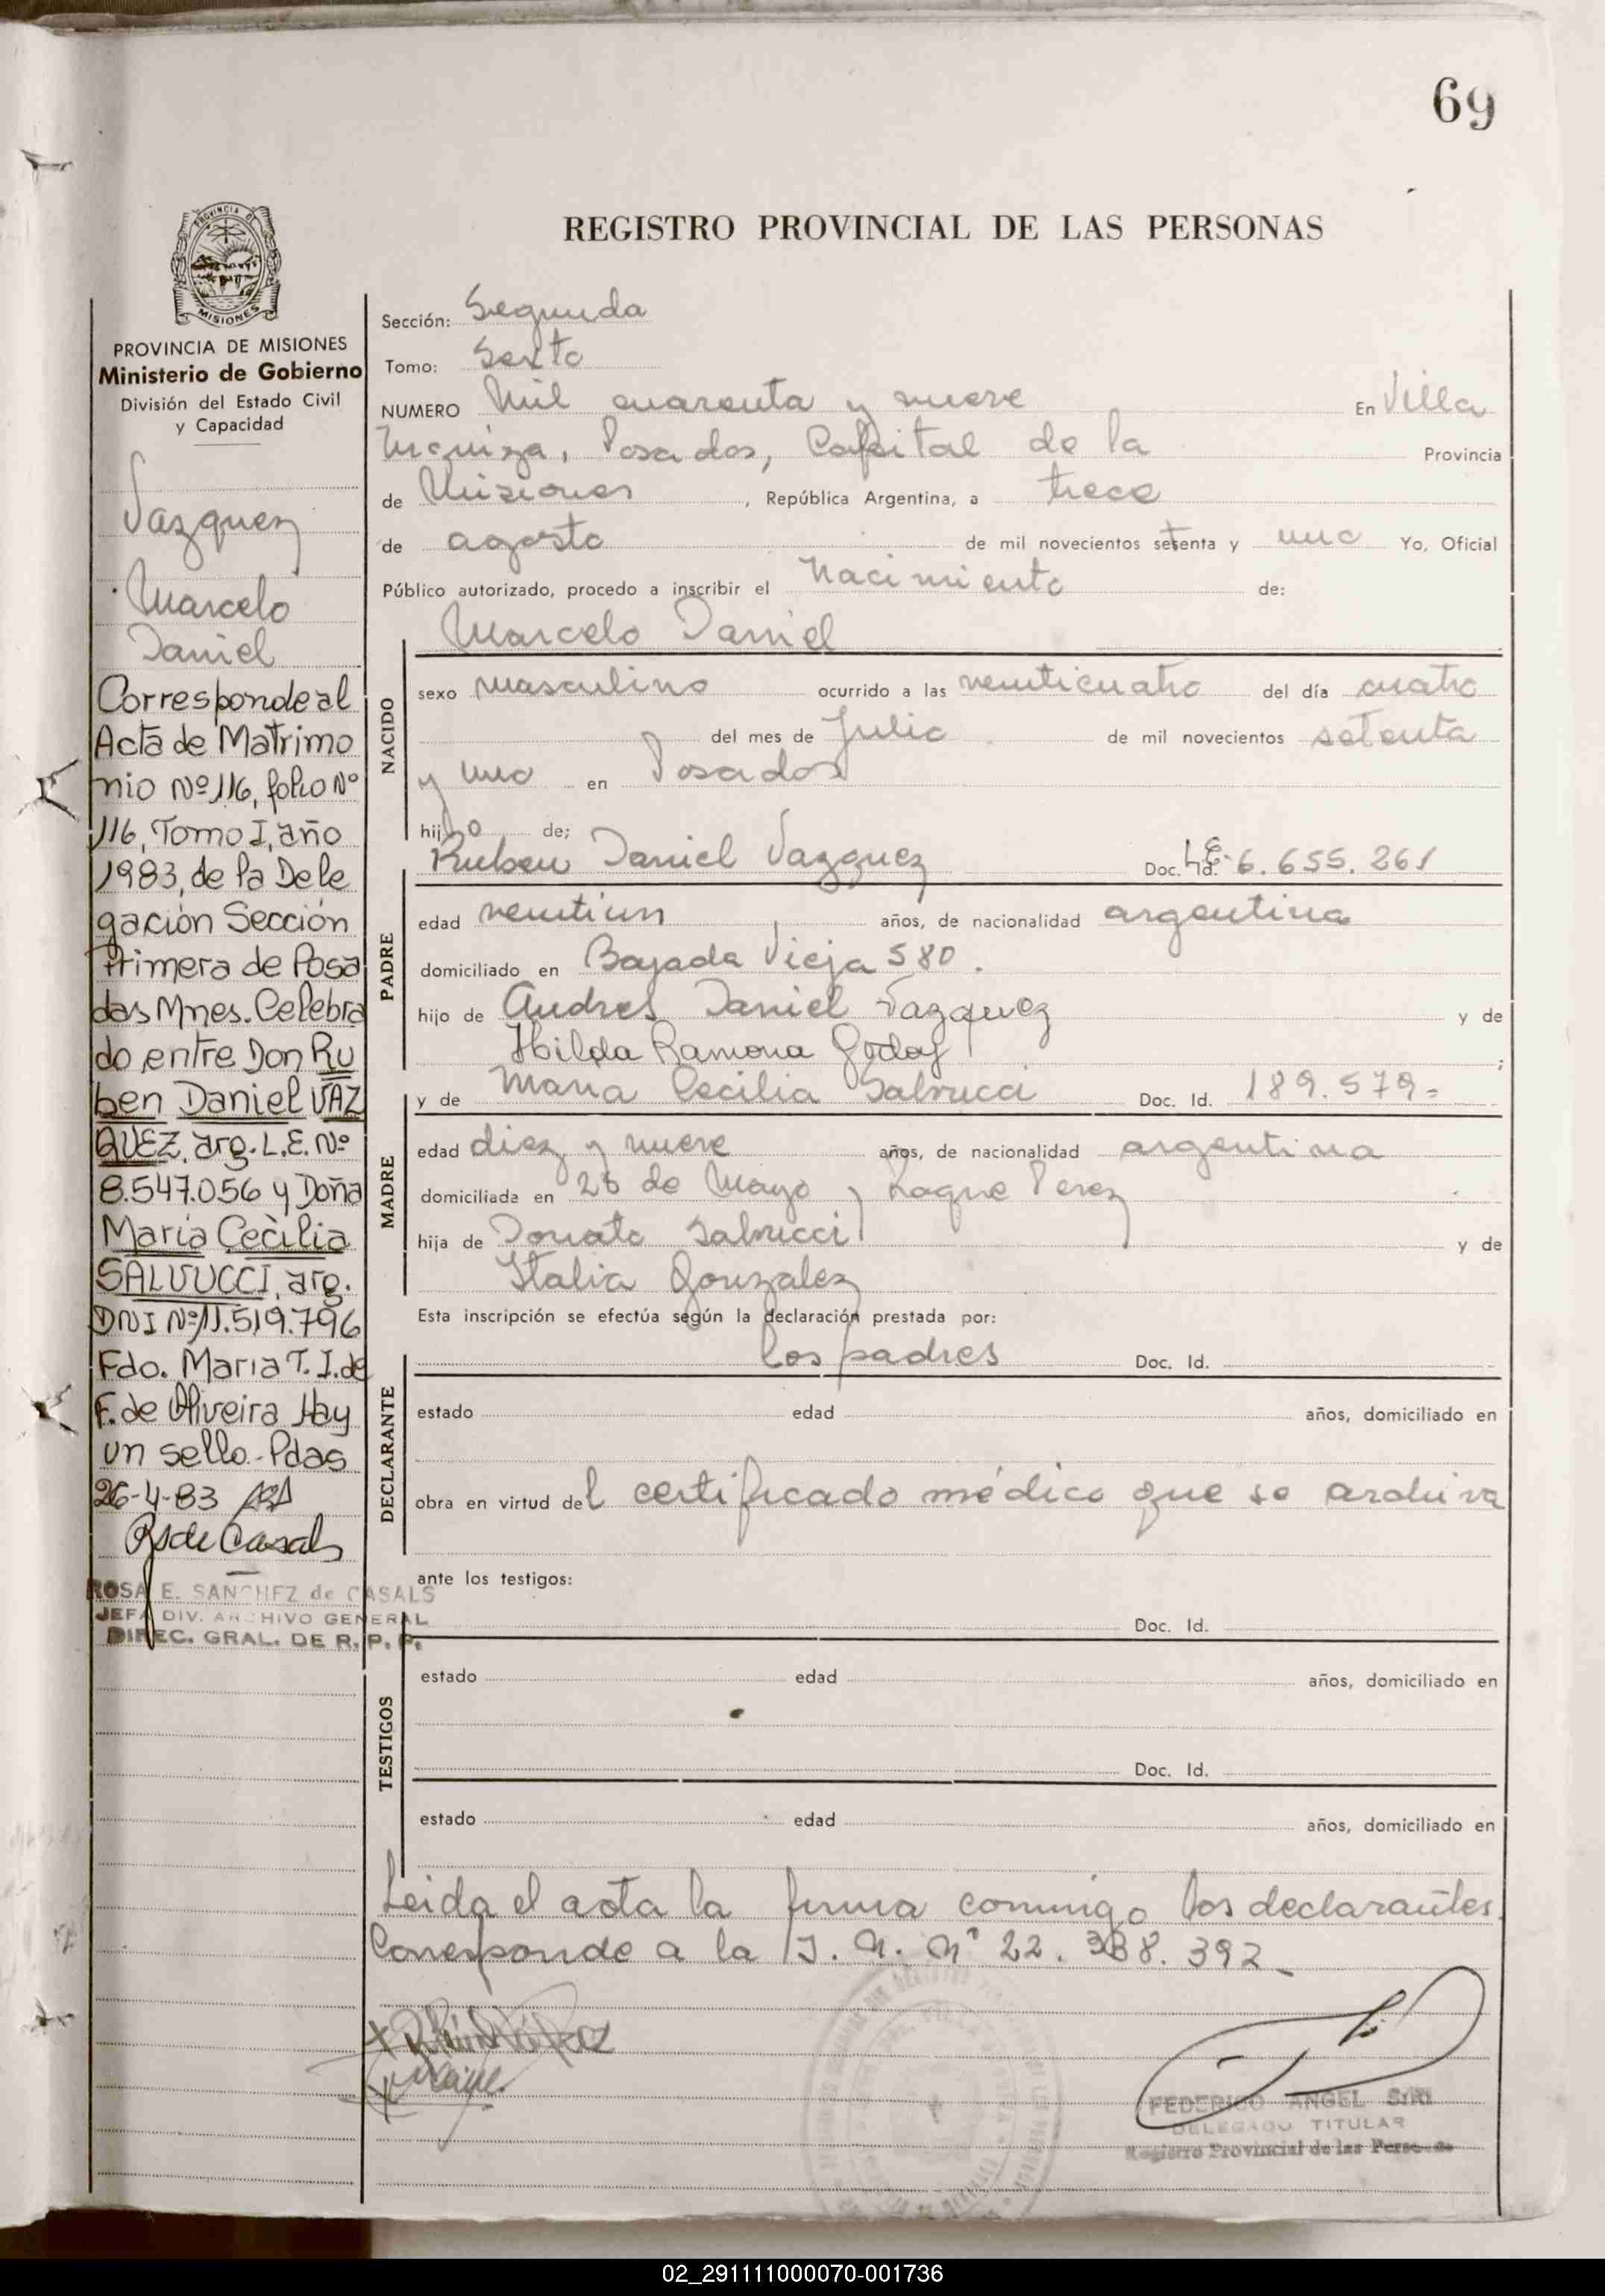 69
REGISTRO PROVINCIAL DE LAS PERSONAS
PROVINCIA DE
MISIONES
PROVINCIA DE MISIONES
Ministerio de Gobierno
División del Estado Civil
y Capacidad
Vazquez
Marcelo
Daniel
Corresponde al
Acta de Matrimo
nio Nº 116, folio Nº
116, Tomo I, año
1983, de la Dele
gación Sección
Primera de Posa
das Mnes. Celebra
do entre Don Ru
ben Daniel VAZ
QUEZ, arg. L.E. Nº
8.547.056 y Doña
María Cecilia
SALVUCCI, arg.
DNI Nº 11.519.796
Fdo. Maria T. I. de
F. de Oliveira Hay
un sello.- Pdas
26-4-83
RSde Casals
ROSA E. SANCHEZ de CASALS
JEFA DIV. ARCHIVO GENERAL
DIREC. GRAL. DE R. P. P.
Sección: Segunda
Tomo: Sexto
NUMERO Mil cuarenta y nueve En Villa
Urquiza, Posadas, Capital de la Provincia
de Misiones, República Argentina, a trece
de agosto de mil novecientos setenta y uno Yo, Oficial
Público autorizado, procedo a inscribir el nacimiento de:
Marcelo Daniel
NACIDO
sexo masculino ocurrido a las veinticuatro del día cuatro
del mes de Julio de mil novecientos setenta
y uno en Posadas
hijo de:
Ruben Daniel Vazquez Doc. Id. L.E. 6.655.261
PADRE
edad veintiun años, de nacionalidad argentina
domiciliado en Bajada Vieja 580.
hijo de Andres Daniel Vazquez y de
Hilda Ramona Godoy ;
y de Maria Cecilia Salvucci Doc. Id. 189.579-
MADRE
edad diez y nueve años, de nacionalidad argentina
domiciliada en 25 de Mayo y Roque Perez
hija de Donato Salvucci y de
Italia Gonzalez
Esta inscripción se efectúa según la declaración prestada por:
los padres Doc. Id.
DECLARANTE
estado edad años, domiciliado en
obra en virtud del certificado médico que se archiva
ante los testigos:
Doc. Id.
TESTIGOS
estado edad años, domiciliado en
Doc. Id.
estado edad años, domiciliado en
Leida el acta la firma conmigo los declarantes.
Corresponde a la I. N. Nº 22. 388. 392_
FEDERICO ANGEL SIRI
DELEGADO TITULAR
Registro Provincial de las Personas
02_291111000070-001736